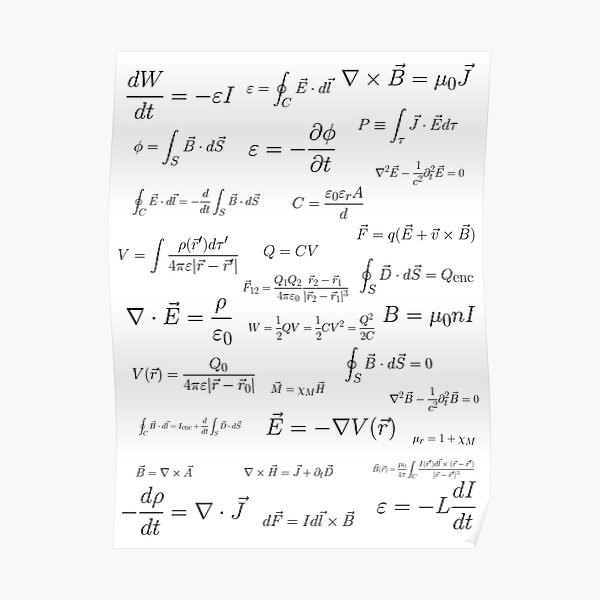 dW/dt = −εI
ε = ∮_C E⃗ · dl⃗
∇ × B⃗ = μ₀J⃗
ϕ = ∫_S B⃗ · dS⃗
ε = −∂ϕ/∂t
P ≡ ∫_τ J⃗ · E⃗dτ
∇²E⃗ − 1/c² ∂ₜ²E⃗ = 0
∮_C E⃗ · dl⃗ = −d/dt ∫_S B⃗ · dS⃗
C = ε₀εᵣA/d
F⃗ = q(E⃗ + v⃗ × B⃗)
V = ∫ ρ(r⃗′)dτ′/4πε|r⃗ − r⃗′|
Q = CV
F⃗₁₂ = Q₁Q₂/4πε₀ (r⃗₂ − r⃗₁)/|r⃗₂ − r⃗₁|³
∮_S D⃗ · dS⃗ = Q_enc
∇ · E⃗ = ρ/ε₀
W = 1/2 QV = 1/2 CV² = Q²/2C
B = μ₀nI
V(r⃗) = Q₀/4πε|r⃗ − r⃗₀|
M⃗ = χ_M H⃗
∮_S B⃗ · dS⃗ = 0
∇²B⃗ − 1/c² ∂ₜ²B⃗ = 0
∮_C H⃗ · dl⃗ = I_enc + d/dt ∫_S D⃗ · dS⃗
E⃗ = −∇V(r⃗)
μᵣ = 1 + χ_M
B⃗ = ∇ × A⃗
∇ × H⃗ = J⃗ + ∂ₜD⃗
B⃗(r⃗) = μ₀/4π ∫_C I(r⃗′)dl⃗ × (r⃗ − r⃗′)/|r⃗ − r⃗′|³
−dρ/dt = ∇ · J⃗
dF⃗ = Idl⃗ × B⃗
ε = −L dI/dt